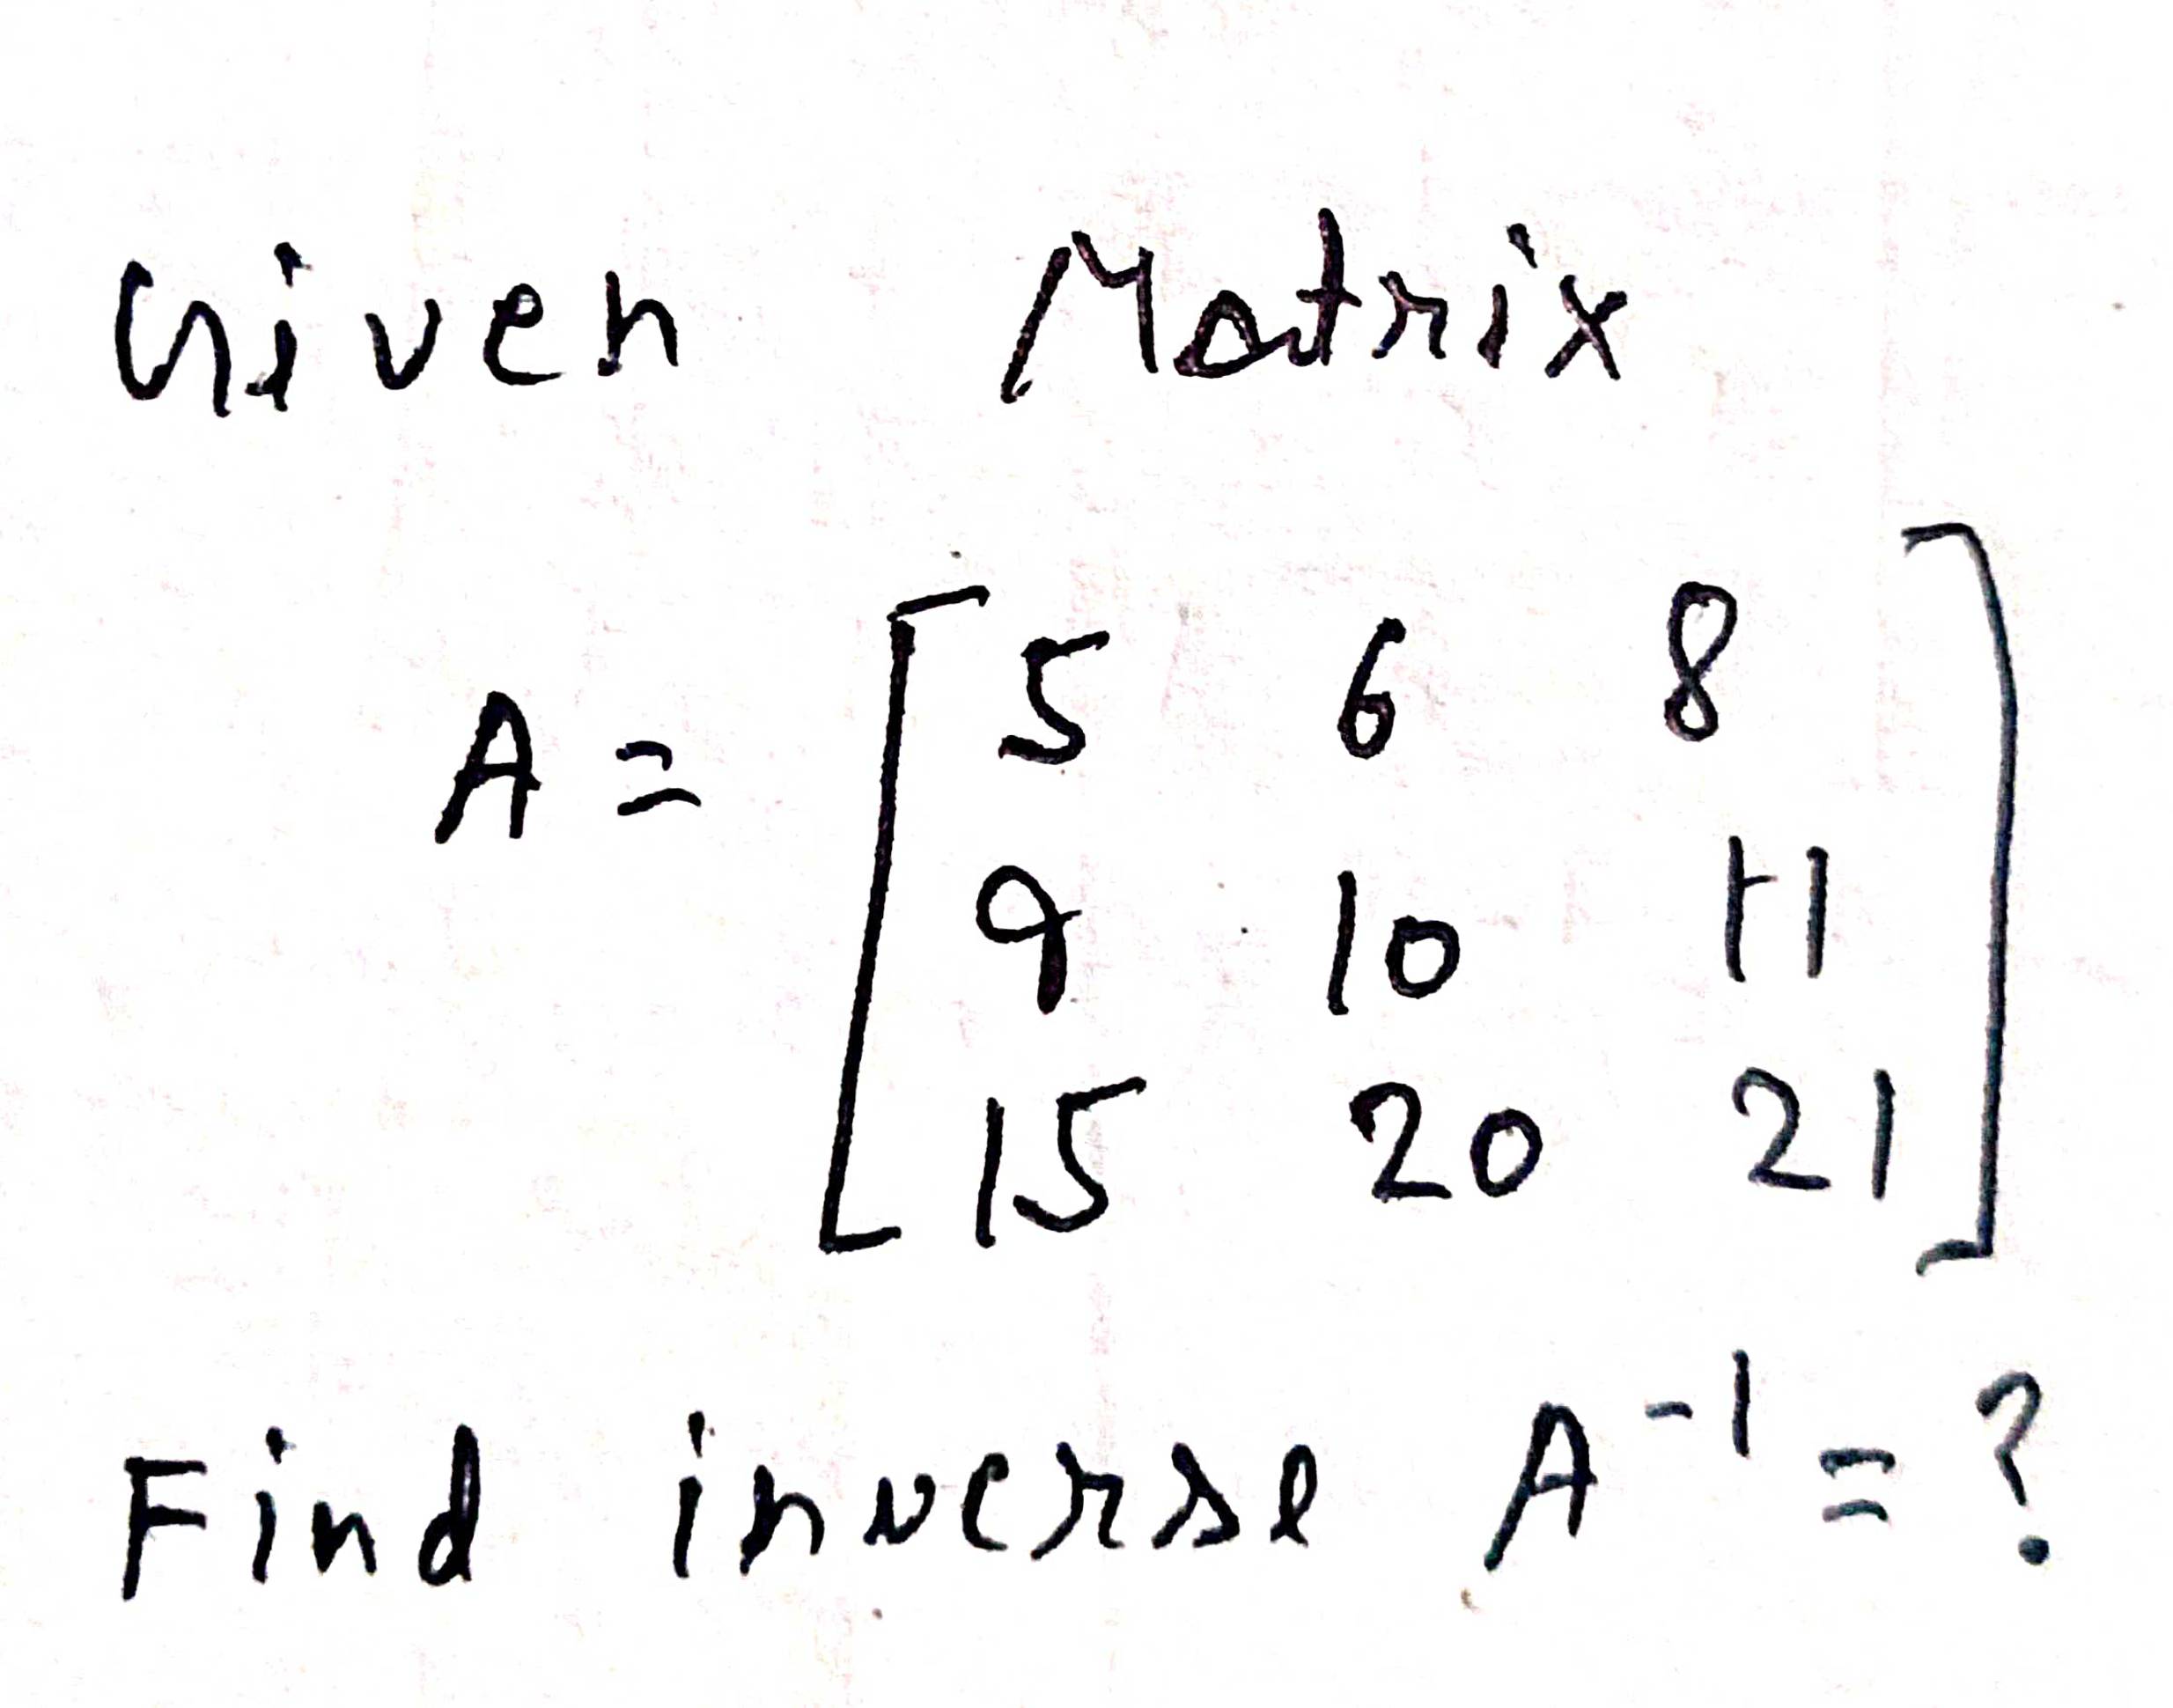 Given Matrix
A = [5 6 8
9 10 11
15 20 21]
Find inverse A⁻¹ = ?